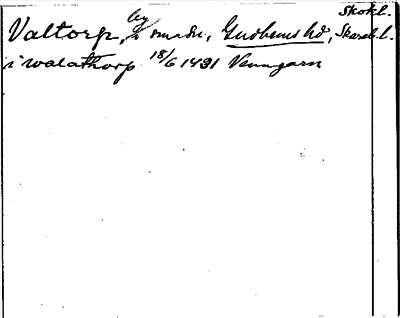 Skokl.
Valtorp, by i smdn, Gudhems hd, Skarab. l.
i walathorp 18/6 1491 Venngarn